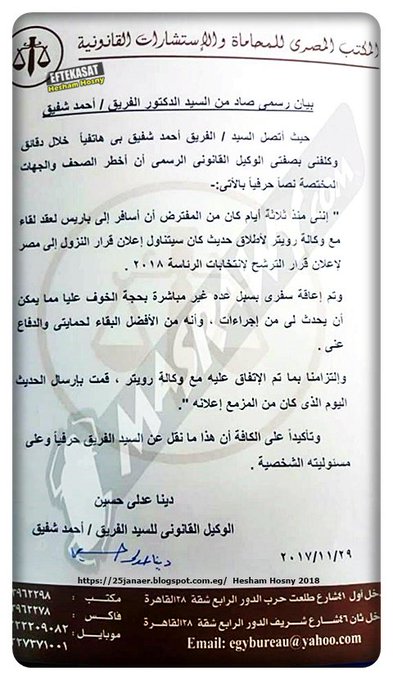 المكتب المصرى للمحاماة والإستشارات القانونية
EFTEKASAT
Hesham Hosny
بيان رسمى صاد من السيد الدكتور الفريق / أحمد شفيق
حيث أتصل السيد / الفريق أحمد شفيق بى هاتفياً خلال دقائق
وكلفنى بصفتى الوكيل القانونى الرسمى أن أخطر الصحف والجهات
المختصة نصاً حرفياً بالأتى:-
" إننى منذ ثلاثة أيام كان من المفترض أن أسافر إلى باريس لعقد لقاء
مع وكالة رويتر لأطلاق حديث كان سيتناول إعلان قرار النزول إلى مصر
لاعلان قرار الترشح لانتخابات الرئاسة ٢٠١٨ .
وتم إعاقة سفرى بسبل عده غير مباشرة بحجة الخوف عليا مما يمكن
أن يحدث لى من إجراءات ، وأنه من الأفضل البقاء لحمايتى والدفاع
عنى .
وإلتزامنا بما تم الإتفاق عليه مع وكالة رويتر ، قمت بإرسال الحديث
اليوم الذى كان من المزمع إعلانه ".
وتأكيداً على الكافة أن هذا ما نقل عن السيد الفريق حرفياً وعلى
مسئوليته الشخصية .
دينا عدلى حسين
الوكيل القانونى للسيد الفريق / أحمد شفيق
٢٠١٧/١١/٢٩
دينا عدلى حسين
https://25janaer.blogspot.com.eg/ Hesham Hosny 2018
دخل أول ٤١شارع طلعت حرب الدور الرابع شقة ٢٨القاهرة
مكتب : ٣٩٦٢٢٩٨
دخل ثان ٤٦شارع شريف الدور الرابع شقة ٢٨القاهرة
فاكس : ٣٩٦٢٢٧٨
موبايل :
Email: egybureau@yahoo.com
MASRAWY.com